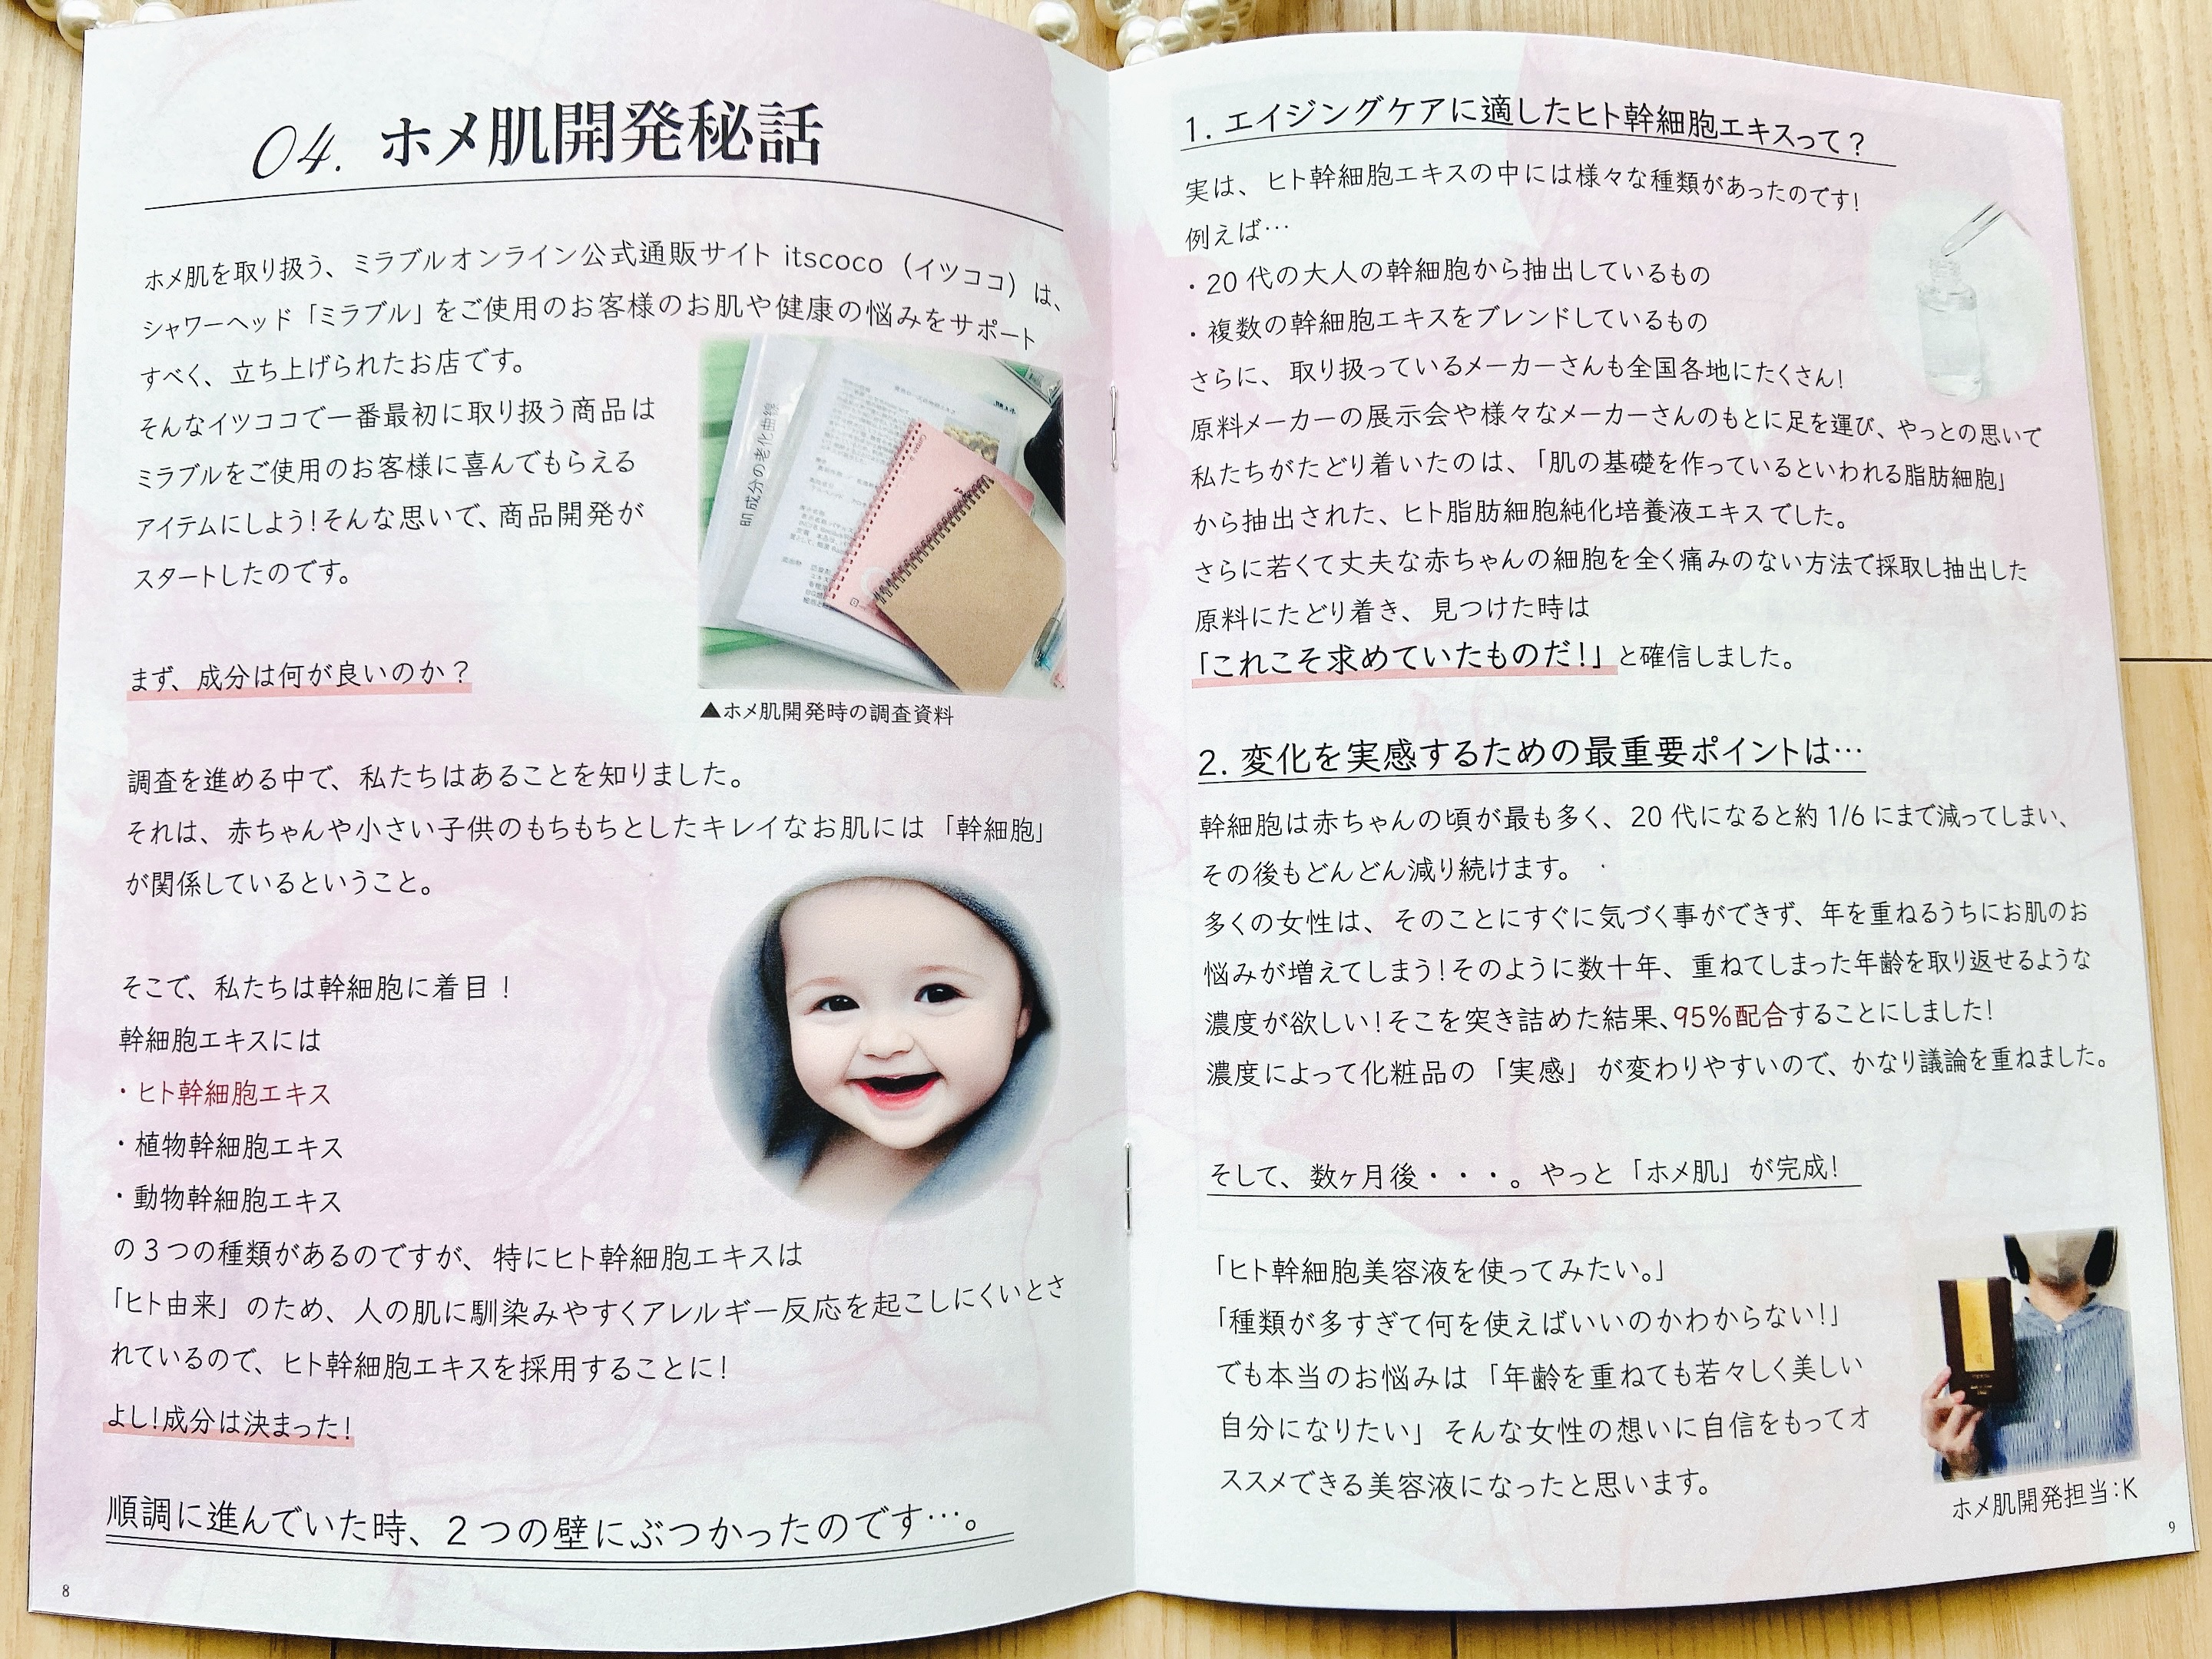 04. ホメ肌開発秘話
ホメ肌を取り扱う、ミラブルオンライン公式通販サイト itscoco（イツココ）は、
シャワーヘッド「ミラブル」をご使用のお客様のお肌や健康の悩みをサポート
すべく、立ち上げられたお店です。
そんなイツココで一番最初に取り扱う商品は
ミラブルをご使用のお客様に喜んでもらえる
アイテムにしよう!そんな思いで、商品開発が
スタートしたのです。
肌成分の老化曲線
▲ホメ肌開発時の調査資料
まず、成分は何が良いのか？
調査を進める中で、私たちはあることを知りました。
それは、赤ちゃんや小さい子供のもちもちとしたキレイなお肌には「幹細胞」
が関係しているということ。
そこで、私たちは幹細胞に着目！
幹細胞エキスには
・ヒト幹細胞エキス
・植物幹細胞エキス
・動物幹細胞エキス
の３つの種類があるのですが、特にヒト幹細胞エキスは
「ヒト由来」のため、人の肌に馴染みやすくアレルギー反応を起こしにくいとさ
れているので、ヒト幹細胞エキスを採用することに!
よし!成分は決まった!
順調に進んでいた時、２つの壁にぶつかったのです…。
8
1. エイジングケアに適したヒト幹細胞エキスって？
実は、ヒト幹細胞エキスの中には様々な種類があったのです!
例えば…
・20 代の大人の幹細胞から抽出しているもの
・複数の幹細胞エキスをブレンドしているもの
さらに、取り扱っているメーカーさんも全国各地にたくさん!
原料メーカーの展示会や様々なメーカーさんのもとに足を運び、やっとの思いで
私たちがたどり着いたのは、「肌の基礎を作っているといわれる脂肪細胞」
から抽出された、ヒト脂肪細胞純化培養液エキスでした。
さらに若くて丈夫な赤ちゃんの細胞を全く痛みのない方法で採取し抽出した
原料にたどり着き、見つけた時は
「これこそ求めていたものだ!」と確信しました。
2. 変化を実感するための最重要ポイントは…
幹細胞は赤ちゃんの頃が最も多く、20 代になると約 1/6 にまで減ってしまい、
その後もどんどん減り続けます。
多くの女性は、そのことにすぐに気づく事ができず、年を重ねるうちにお肌のお
悩みが増えてしまう!そのように数十年、重ねてしまった年齢を取り返せるような
濃度が欲しい!そこを突き詰めた結果、95%配合することにしました!
濃度によって化粧品の「実感」が変わりやすいので、かなり議論を重ねました。
そして、数ヶ月後・・・。やっと「ホメ肌」が完成!
「ヒト幹細胞美容液を使ってみたい。」
「種類が多すぎて何を使えばいいのかわからない!」
でも本当のお悩みは「年齢を重ねても若々しく美しい
自分になりたい」そんな女性の想いに自信をもってオ
ススメできる美容液になったと思います。
ホメ肌開発担当:K
9